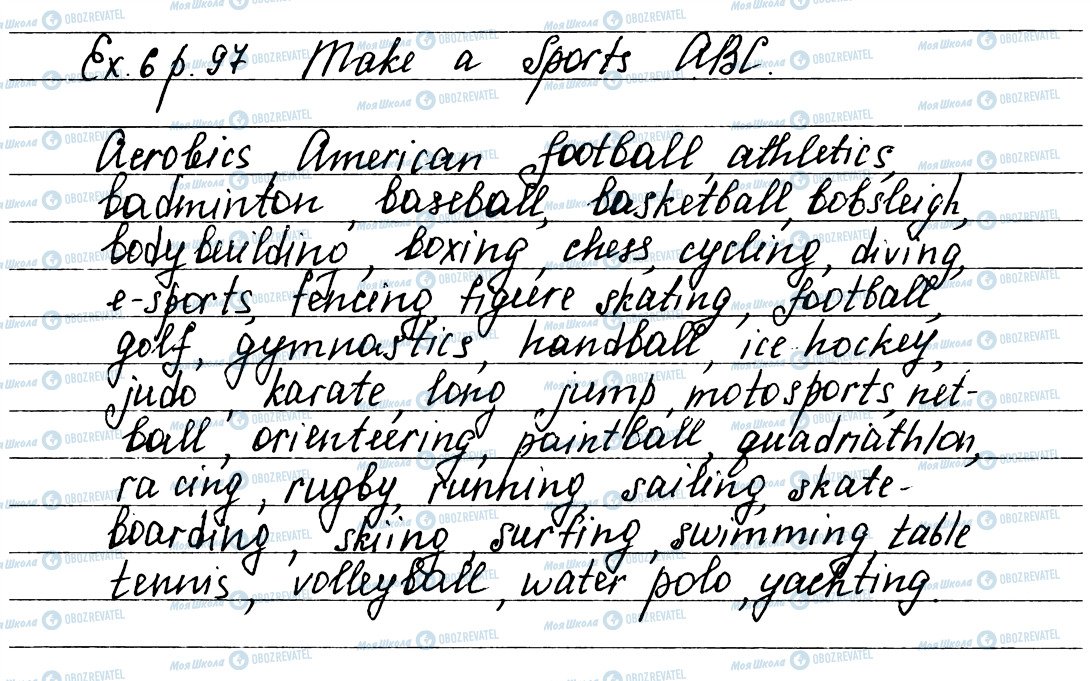 Ex. 6 p. 97 Make a Sports ABC.
Aerobics, American football, athletics,
badminton, baseball, basketball, bobsleigh,
bodybuilding, boxing, chess, cycling, diving,
e-sports, fencing, figure skating, football,
golf, gymnastics, handball, ice hockey,
judo, karate, long jump, motosports, net-
ball, orienteering, paintball, quadriathlon,
racing, rugby, running, sailing, skate-
boarding, skiing, surfing, swimming, table
tennis, volleyball, water polo, yachting.